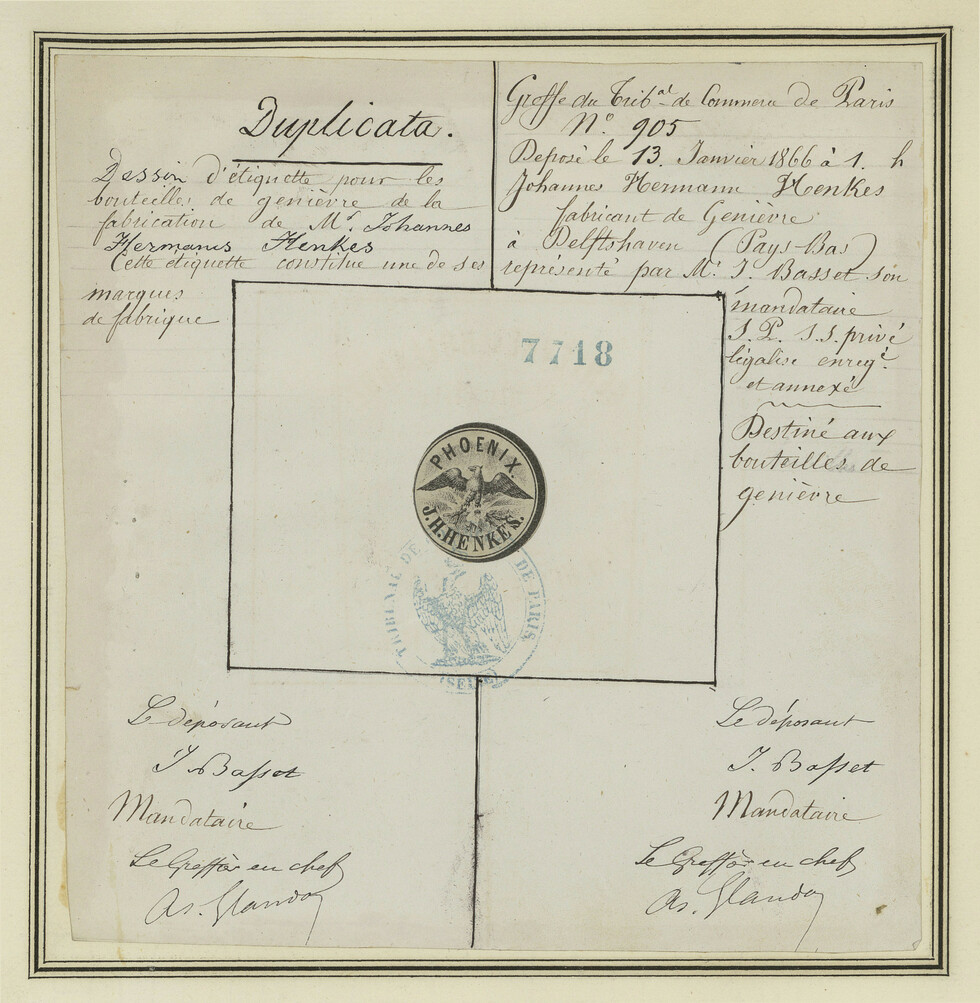 Duplicata.
Dessin d'étiquette pour les
bouteilles de genièvre de la
fabrication de Mr. Johannes
Hermanus Henkes
Cette étiquette constitue une de ses
marques
de fabrique
Greffe du Tribal de Commerce de Paris
No. 905
Deposé le 13. Janvier 1866 à 1. h
Johannes Hermann Henkes
fabricant de Genièvre
à Delftshaven (Pays-Bas)
représenté par Mr. J. Basset son
mandataire
S.P. S.S. privé
légalisé enregé.
et annexé
Destiné aux
bouteilles de
genièvre
7718
PHOENIX.
J.H.HENKES.
TRIBUNAL DE
DE PARIS.
(SEINE)
Le déposant
J Basset
Mandataire
Le Greffier en chef
As. Glandaz
Le déposant
J. Basset
Mandataire
Le Greffier en chef
As. Glandaz